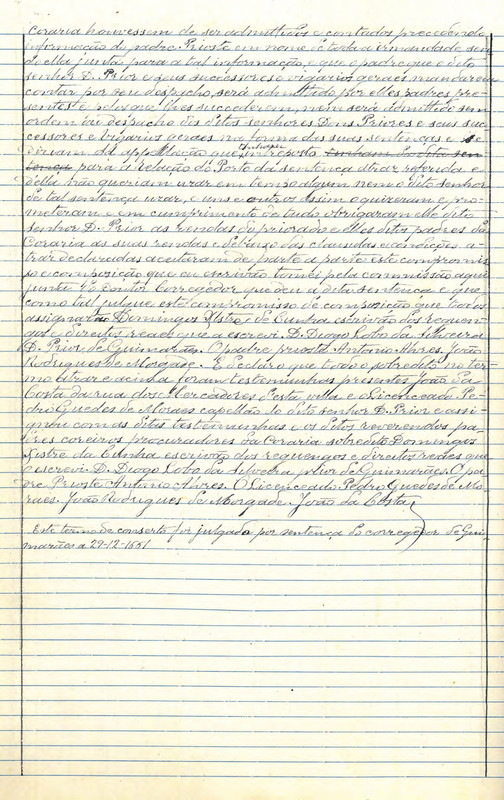 Coraria houvessem de ser admittidos e contados precedendo
informação do padre Prioste em nome de toda a irmandade sem
de ella junta para a tal informação, e que o padre que o dito
senhor D. Prior e seus successores e vigarios geraes mandarem
contar por seu despacho, será admittido por elles padres pre-
sentes e pelos que lhes succederem, nem será admittido sem
ordem tal despacho dos ditos senhores Dons Priores e seus suc-
cessores e vigarios geraes na forma das suas sentenças e de
diriam da appellação que interposto
para a relação do Porto da sentença atraz referida e
della não queriam uzar em tempo algum nem o dito senhor
de tal sentença uzar, e uns e outros assim o quizeram e pro-
metteram e em cumprimento de tudo obrigaram elle dito
senhor D. Prior as rendas do priorado e elles ditos padres da
Coraria as suas rendas e debaixo das clausulas e condições a-
traz declaradas aceitaram de parte a parte este compromis-
so e composição que eu escrivão tomei pela commissão aqui
junta do Doutor Corregedor que deu a dita sentença e que
como tal julgue este compromisso de composição que todos
assignarão Domingos Listre da Cunha escrivão dos reguen-
gos e direitos reaes que o escrevi. D. Diogo Lobo da Silveira
D. Prior de Guimarães. O padre prioste Antonio Alvres. João
Rodrigues de Morgade. E declaro que todo o sobredito no ter-
mo atraz e acima foram testemunhas presentes João da
Costa da rua dos Mercadores desta villa e o Licenceado Pe-
dro Guedes de Moraes capellão do dito senhor D. Prior e assi-
gnou com as ditas testemunhas e os ditos reverendos pa-
dres coreiros procuradores da Coraria sobredito Domingos
Listre da Cunha escrivão dos reguengos e direitos reaes que
o escrevi. D. Diogo Lobo da Silveira prior de Guimarães. O pa-
dre Prioste Antonio Alvres. O Licenceado Pedro Guedes de Mo-
raes. João Rodrigues de Morgade. João da Costa
Este termo de concerto foi julgado por sentença do corregedor de Gui-
marães a 29-12-1651